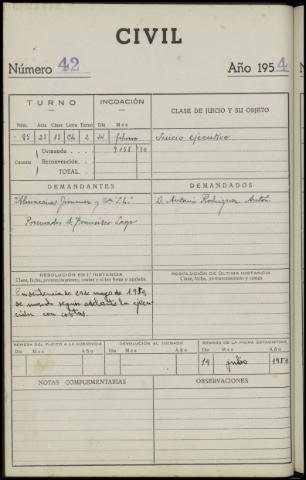 CIVIL
Número 42
Año 1954
TURNO
INCOACIÓN
CLASE DE JUICIO Y SU OBJETO
Núm. Acta Clase Letra Turno Día Mes
85 23 13 Ch 2 24 febrero
Juicio ejecutivo
Cuantía
Demanda
9.158 20
Reconvención
TOTAL
DEMANDANTES
DEMANDADOS
"Almacenes Jimenez y Cía S.L."
D. Antonio Rodriguez Antón
Procurador D. Francisco Lago
RESOLUCIÓN EN 1.ª INSTANCIA
Clase, fecha, pronunciamientos, costas y si fue firme o apelada.
RESOLUCIÓN DE ÚLTIMA INSTANCIA
Clase, fecha, pronunciamiento y costas
En sentencia de 24 de mayo de 1954
se mandó seguir adelante la ejecu-
ción con costas.
REMESA DEL PLEITO A LA AUDIENCIA
DEVOLUCIÓN AL JUZGADO
REMESA DE LA FICHA ESTADÍSTICA
Día Mes Año
Día Mes Año
Día Mes Año
14 julio 1954
NOTAS COMPLEMENTARIAS
OBSERVACIONES